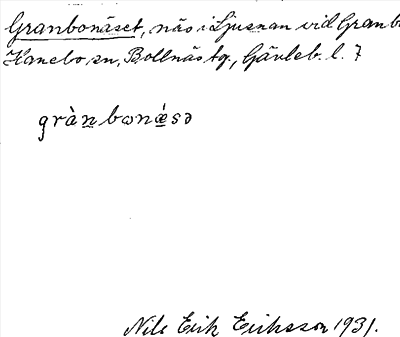 Granbonäset, näs i Ljusnan vid Granbo
Hanebo sn, Bollnäs tg., Gävleb. l. 7
grànbɷnǽsə
Nils Erik Eriksson 1931.